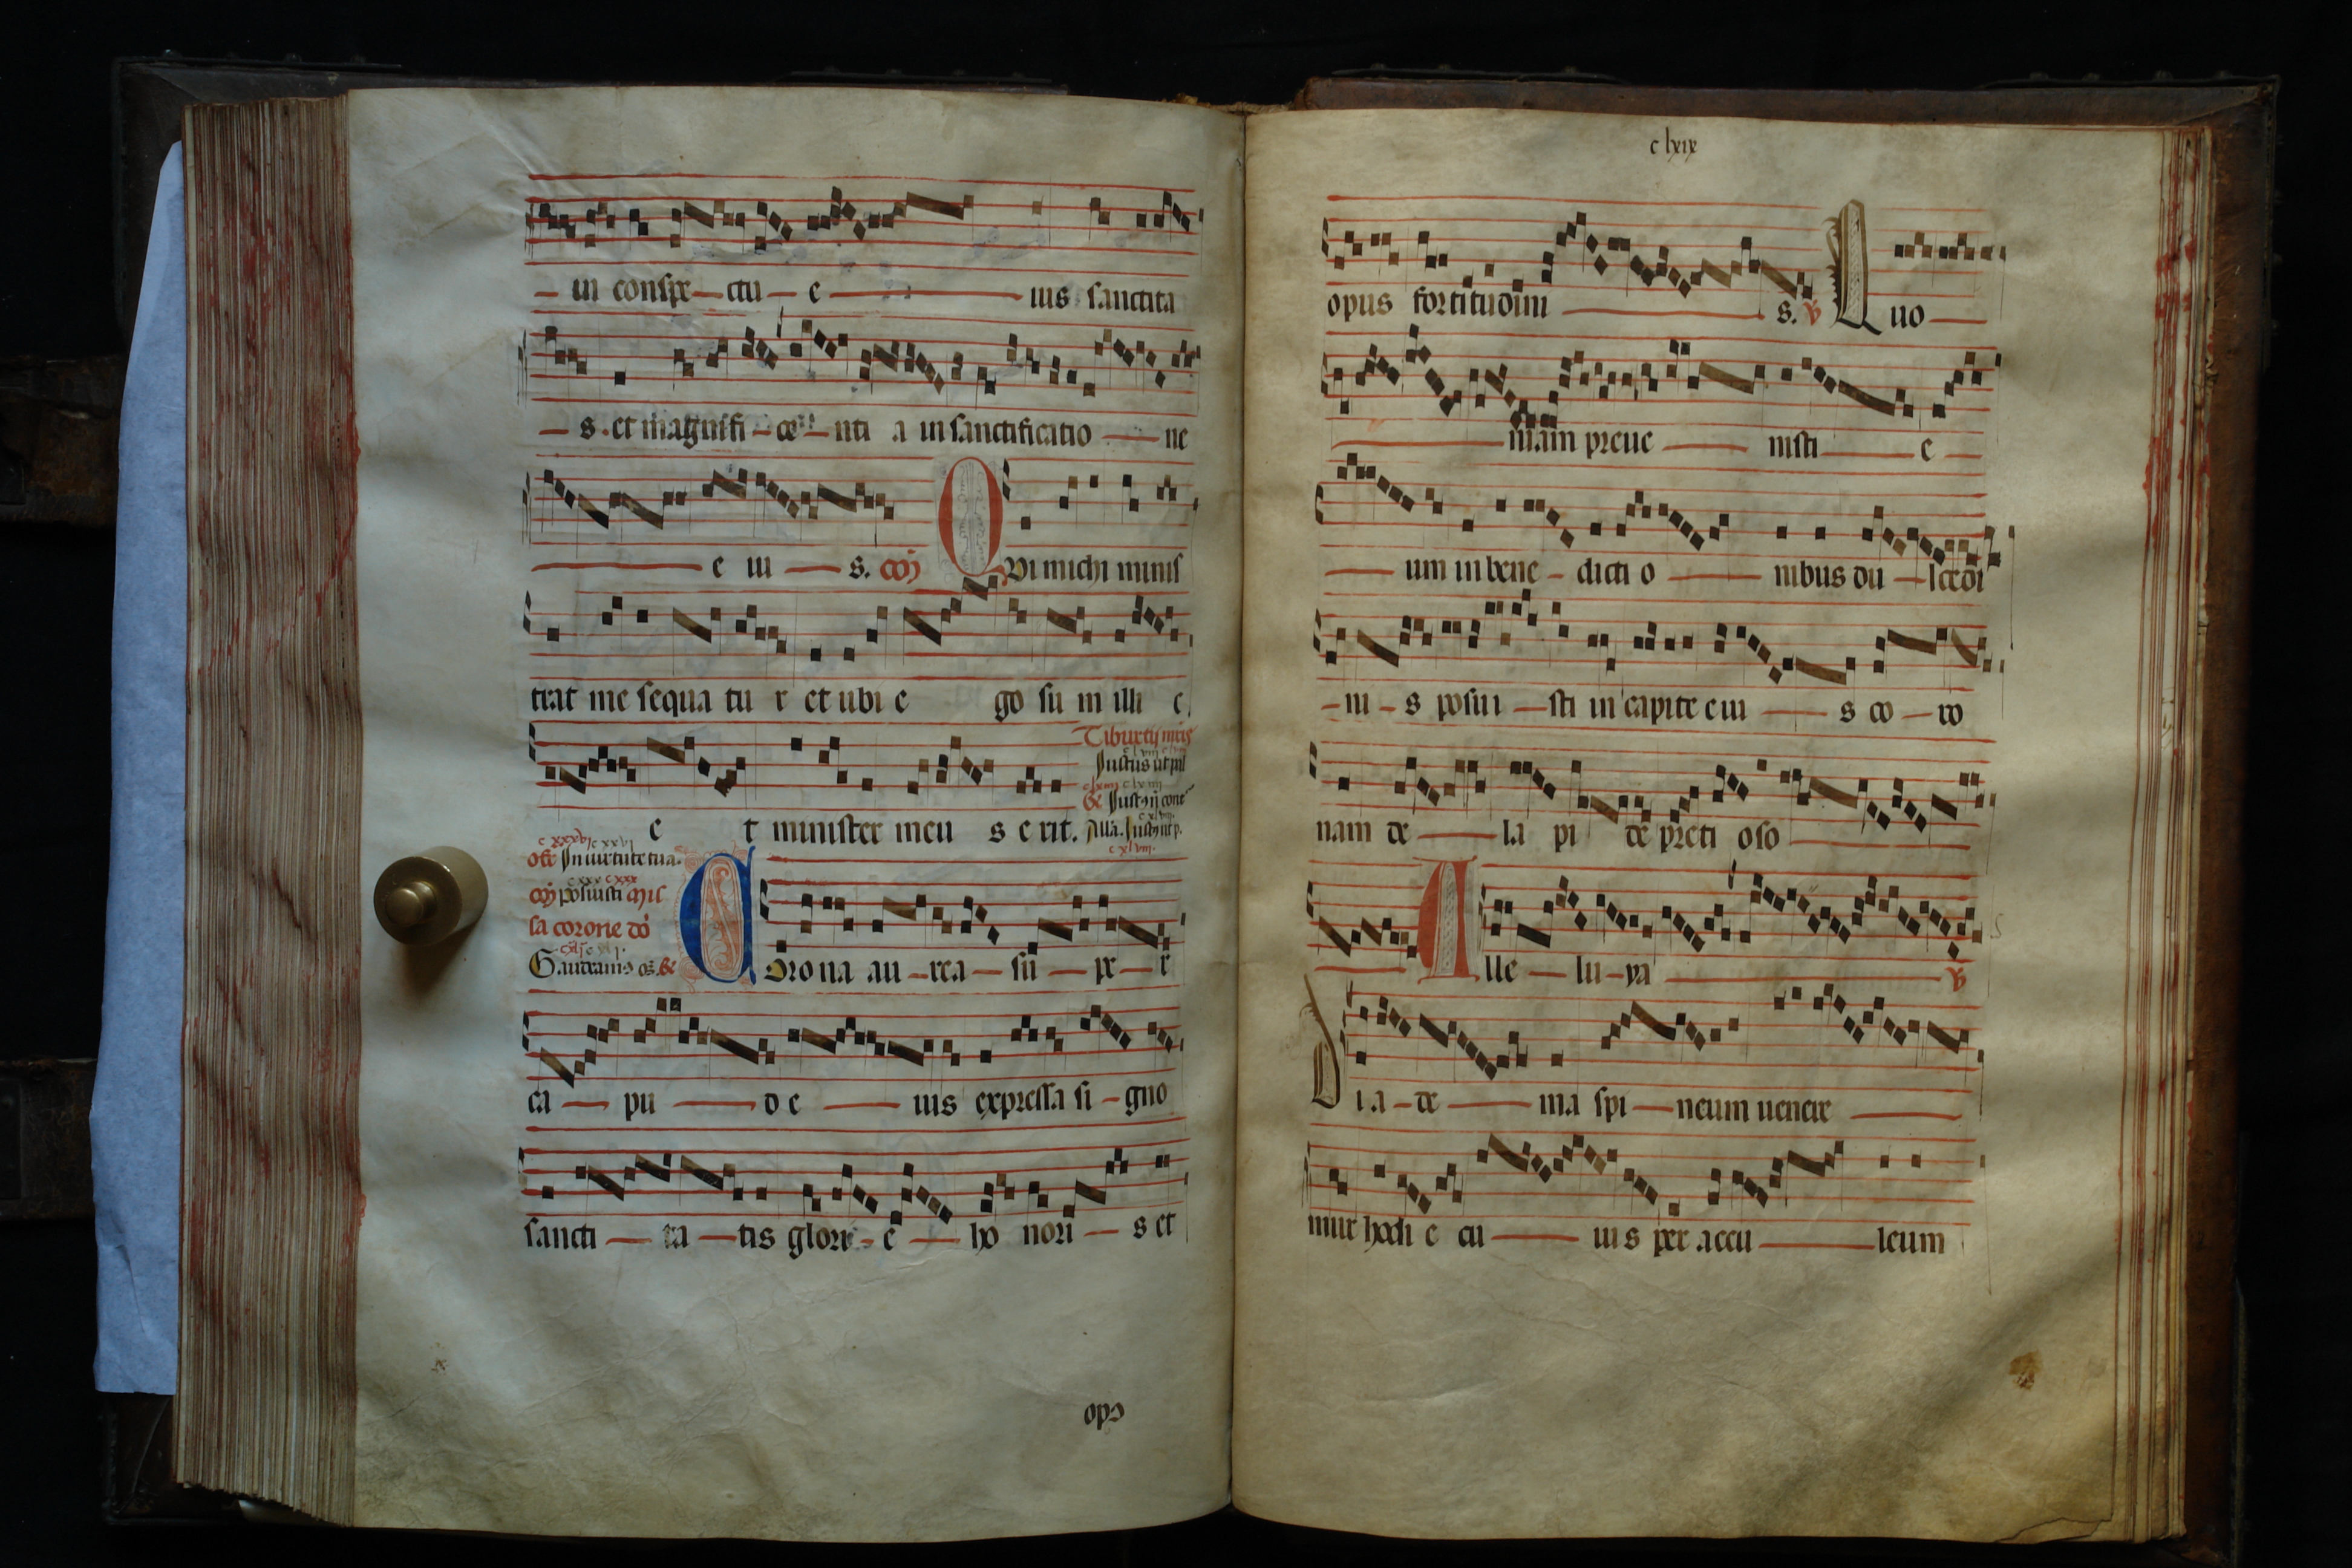 in conspe ctu e ius sanctita
s. et magnifi ce nti a in sanctificatio ne
e iu s. coȷ Qvi michi minis
trat me sequa tu r et ubi e go su m illi c
Tiburtij
Justus ut pal
e t minister meu s e rit.
off In uirtute tua.
coȷ posuisti mis
sa corone do
Gaudeamus
Corona au rea su pe r
ca pu d e ius expressa si gno
sancti ta tis glori e ho nori s et
opꝰ
c lxix
opus fortitudini s. v Quo
niam preue nisti e
um in bene dicti o nibus du lcedi
ni s posui sti in capite eiu s co ro
nam de la pi de preti oso
Alle lu ya v
Dia de ma spi neum uenere
mur hodi e cu ius per accu leum